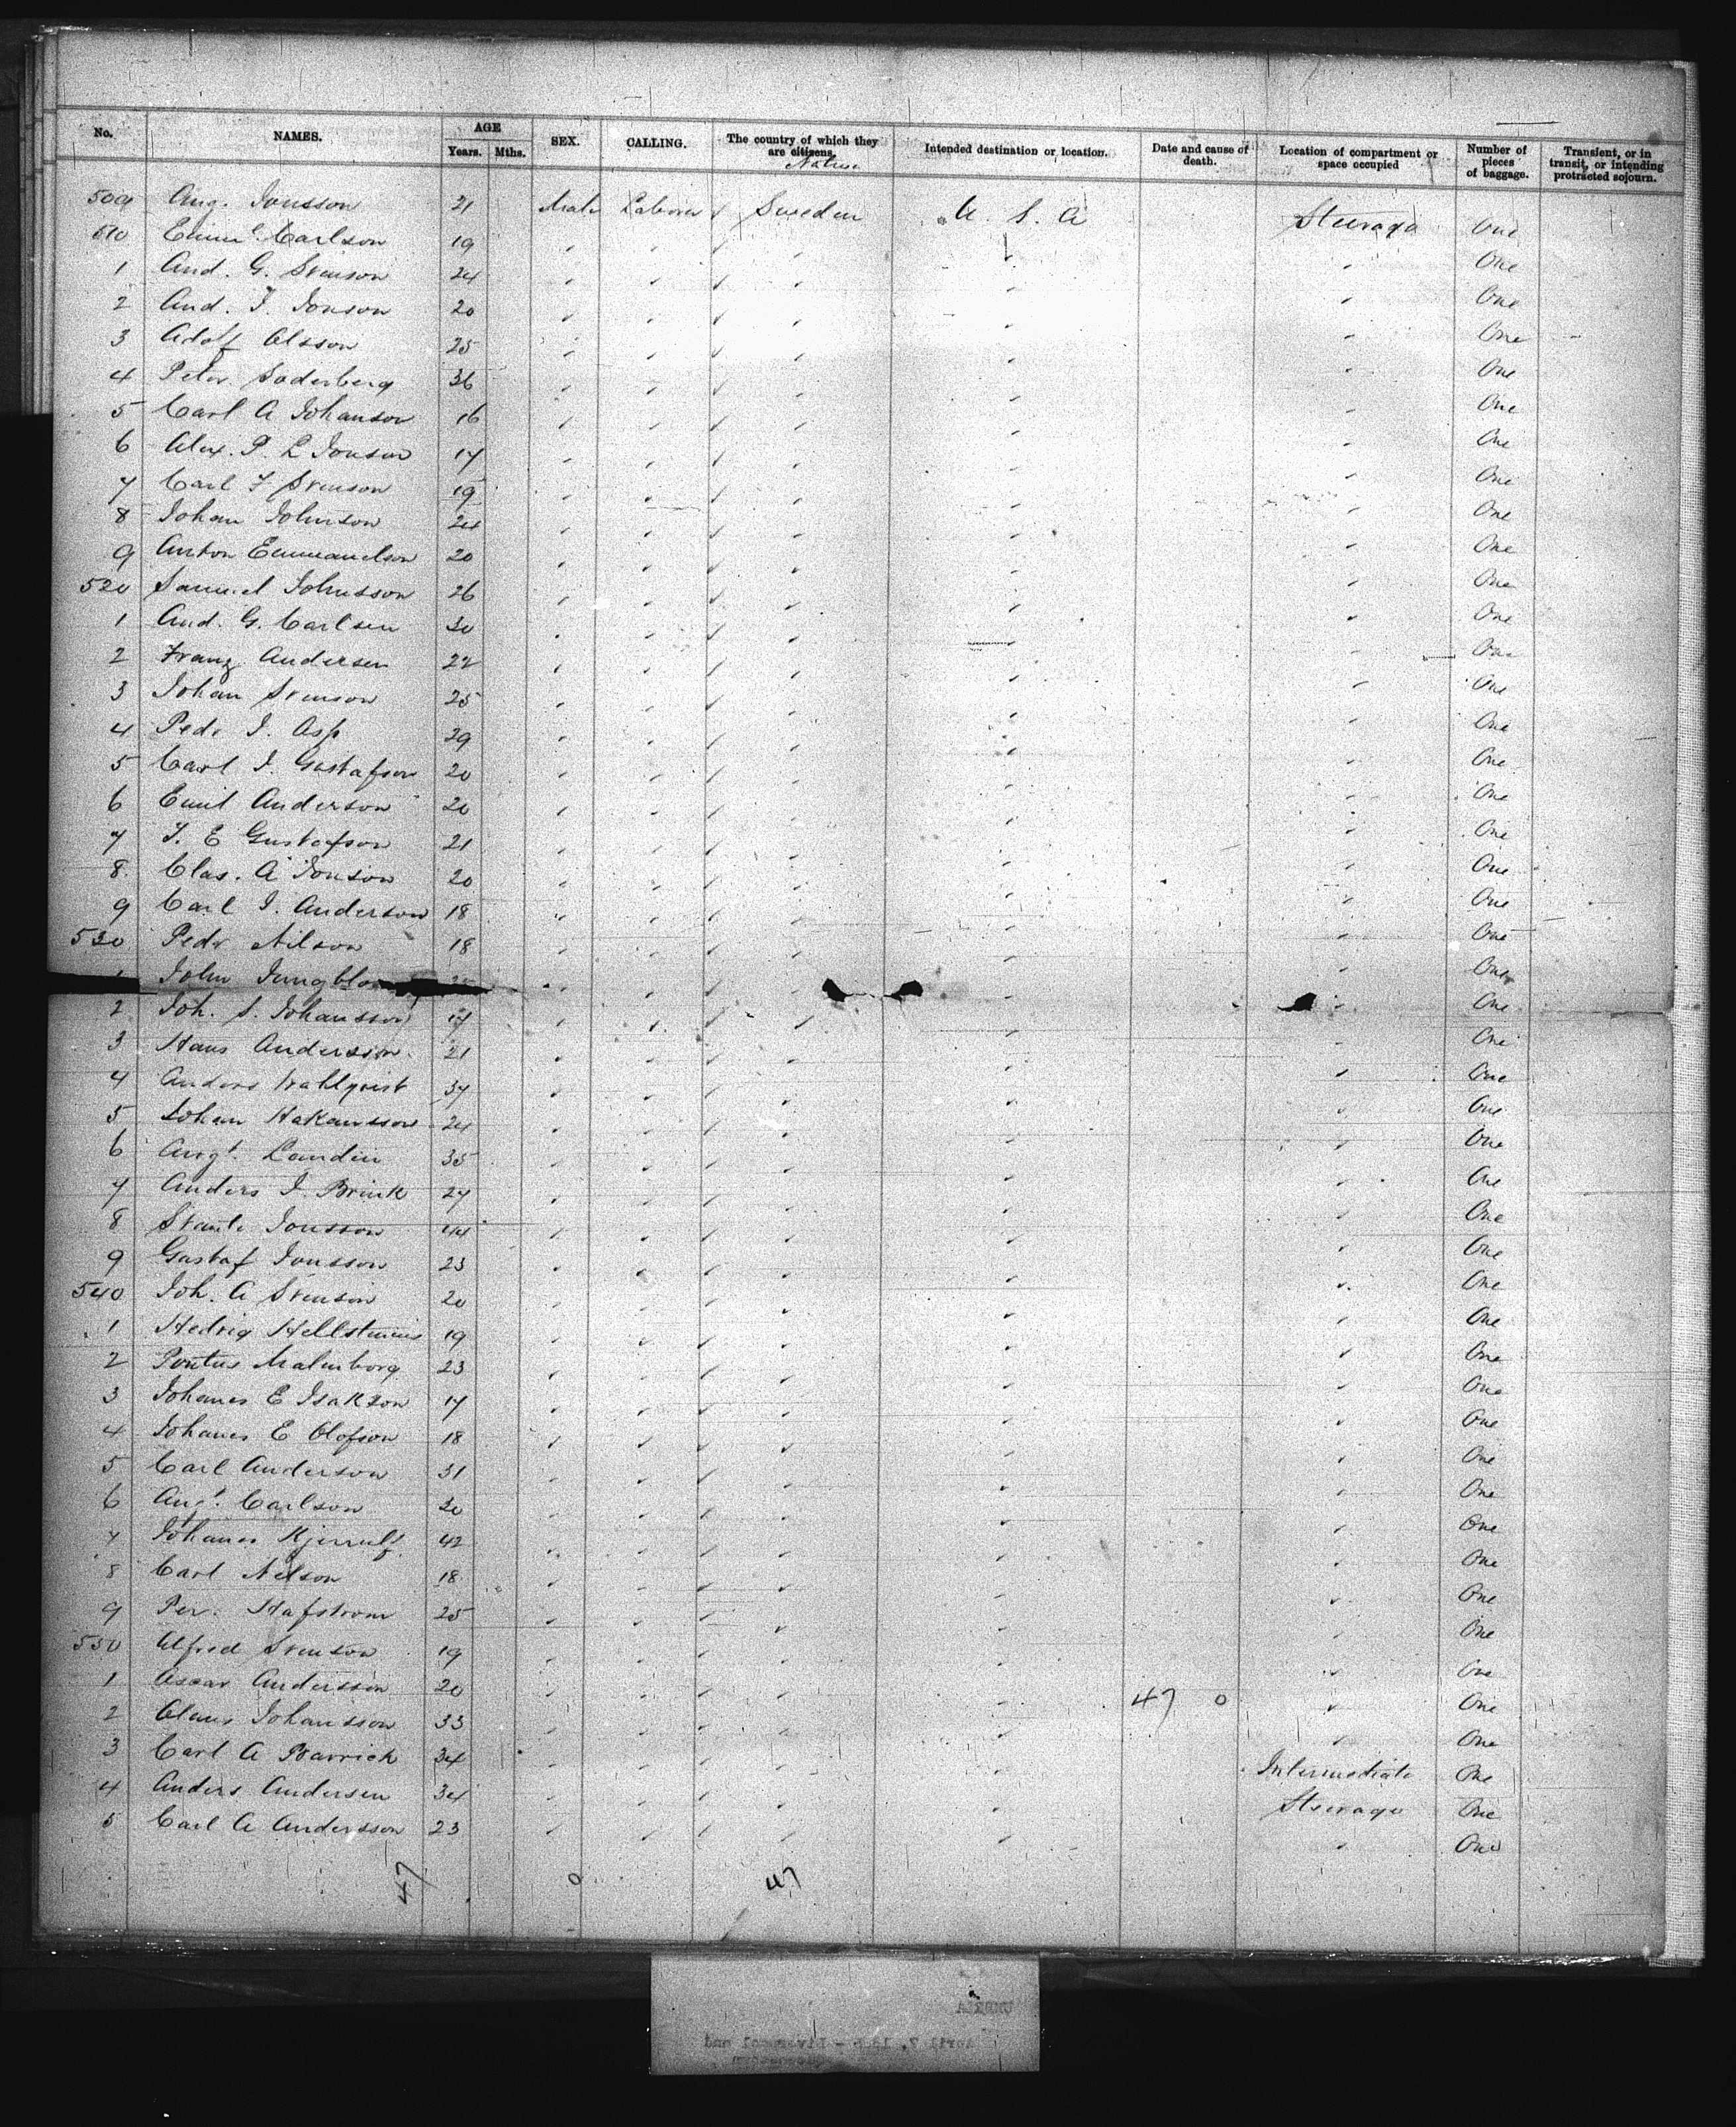 No. NAMES. AGE Years. Mths. SEX. CALLING. The country of which they are citizens. Native Intended destination or location. Date and cause of death. Location of compartment or space occupied Number of pieces of baggage. Transient, or in transit, or intending protracted sojourn.
509 Aug. Jonsson 21 Male Laborer Sweden U. S. A Steerage One
510 Eman.l Carlson 19 One
1 And. G. Svenson 24 One
2 And. J. Jonson 20 One
3 Adolf Olsson 25 One
4 Peter Soderberg 36 One
5 Carl A Johanson 16 One
6 Alex. P. L Jonson 17 One
7 Carl F Svenson 19 One
8 Johan Johnson 24 One
9 Anton Emmanelson 20 One
520 Samuel Johnsson 26 One
1 And. G. Carlsen 30 One
2 Franz Andersen 22 One
3 Johan Svenson 25 One
4 Pedr J. Asp 29 One
5 Carl J. Gustafson 20 One
6 Emil Anderson 20 One
7 J. E Gustafson 21 One
8 Clas. A Jonson 20 One
9 Carl J. Anderson 18 One
530 Pedr Nilson 18 One
1 John One
2 Joh. S. Johansson 17 One
3 Hans Anderson 21 One
4 Anders Wahlquist 37 One
5 Johan Hakansson 24 One
6 Augt. Landin 35 One
7 Anders J. Brink 27 One
8 Svante Jonsson 44 One
9 Gustaf Jonsson 23 One
540 Joh. A Svenson 20 One
1 Hedvig 19 One
2 Pontus Malmborg 23 One
3 Johanes E Isakson 17 One
4 Johanes E Olofson 18 One
5 Carl Anderson 31 One
6 Augt. Carlson 20 One
7 Johanes Kjerrulf 42 One
8 Carl Nelson 18 One
9 Per. Hafstrom 25 One
550 Alfred Svenson 19 One
1 Oscar Andersson 20 47 0 One
2 Claus Johansson 33 One
3 Carl A 34 Intermediate One
4 Anders Andersen 34 Steerage One
5 Carl A Andersson 23 One
47 0 47